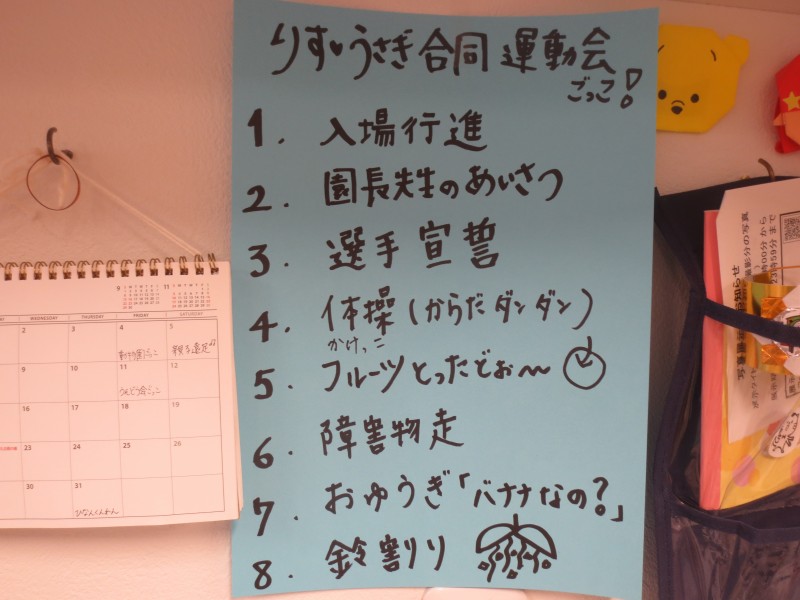 りす・うさぎ合同運動会
ごっこ!
1. 入場行進
2. 園長先生のあいさつ
3. 選手宣誓
4. 体操(からだダンダン)
かけっこ
5. フルーツとったどぉ〜
6. 障害物走
7. おゆうぎ「バナナなの?」
8. 鈴割り
9 11
WEDNESDAY THURSDAY FRIDAY SATURDAY
2 3 4 5
動物園ごっこ 親子遠足
9 10 11 12
うんどう会ごっこ
16 17 18 19
23 24 25 26
30 31
ひなんくんれん